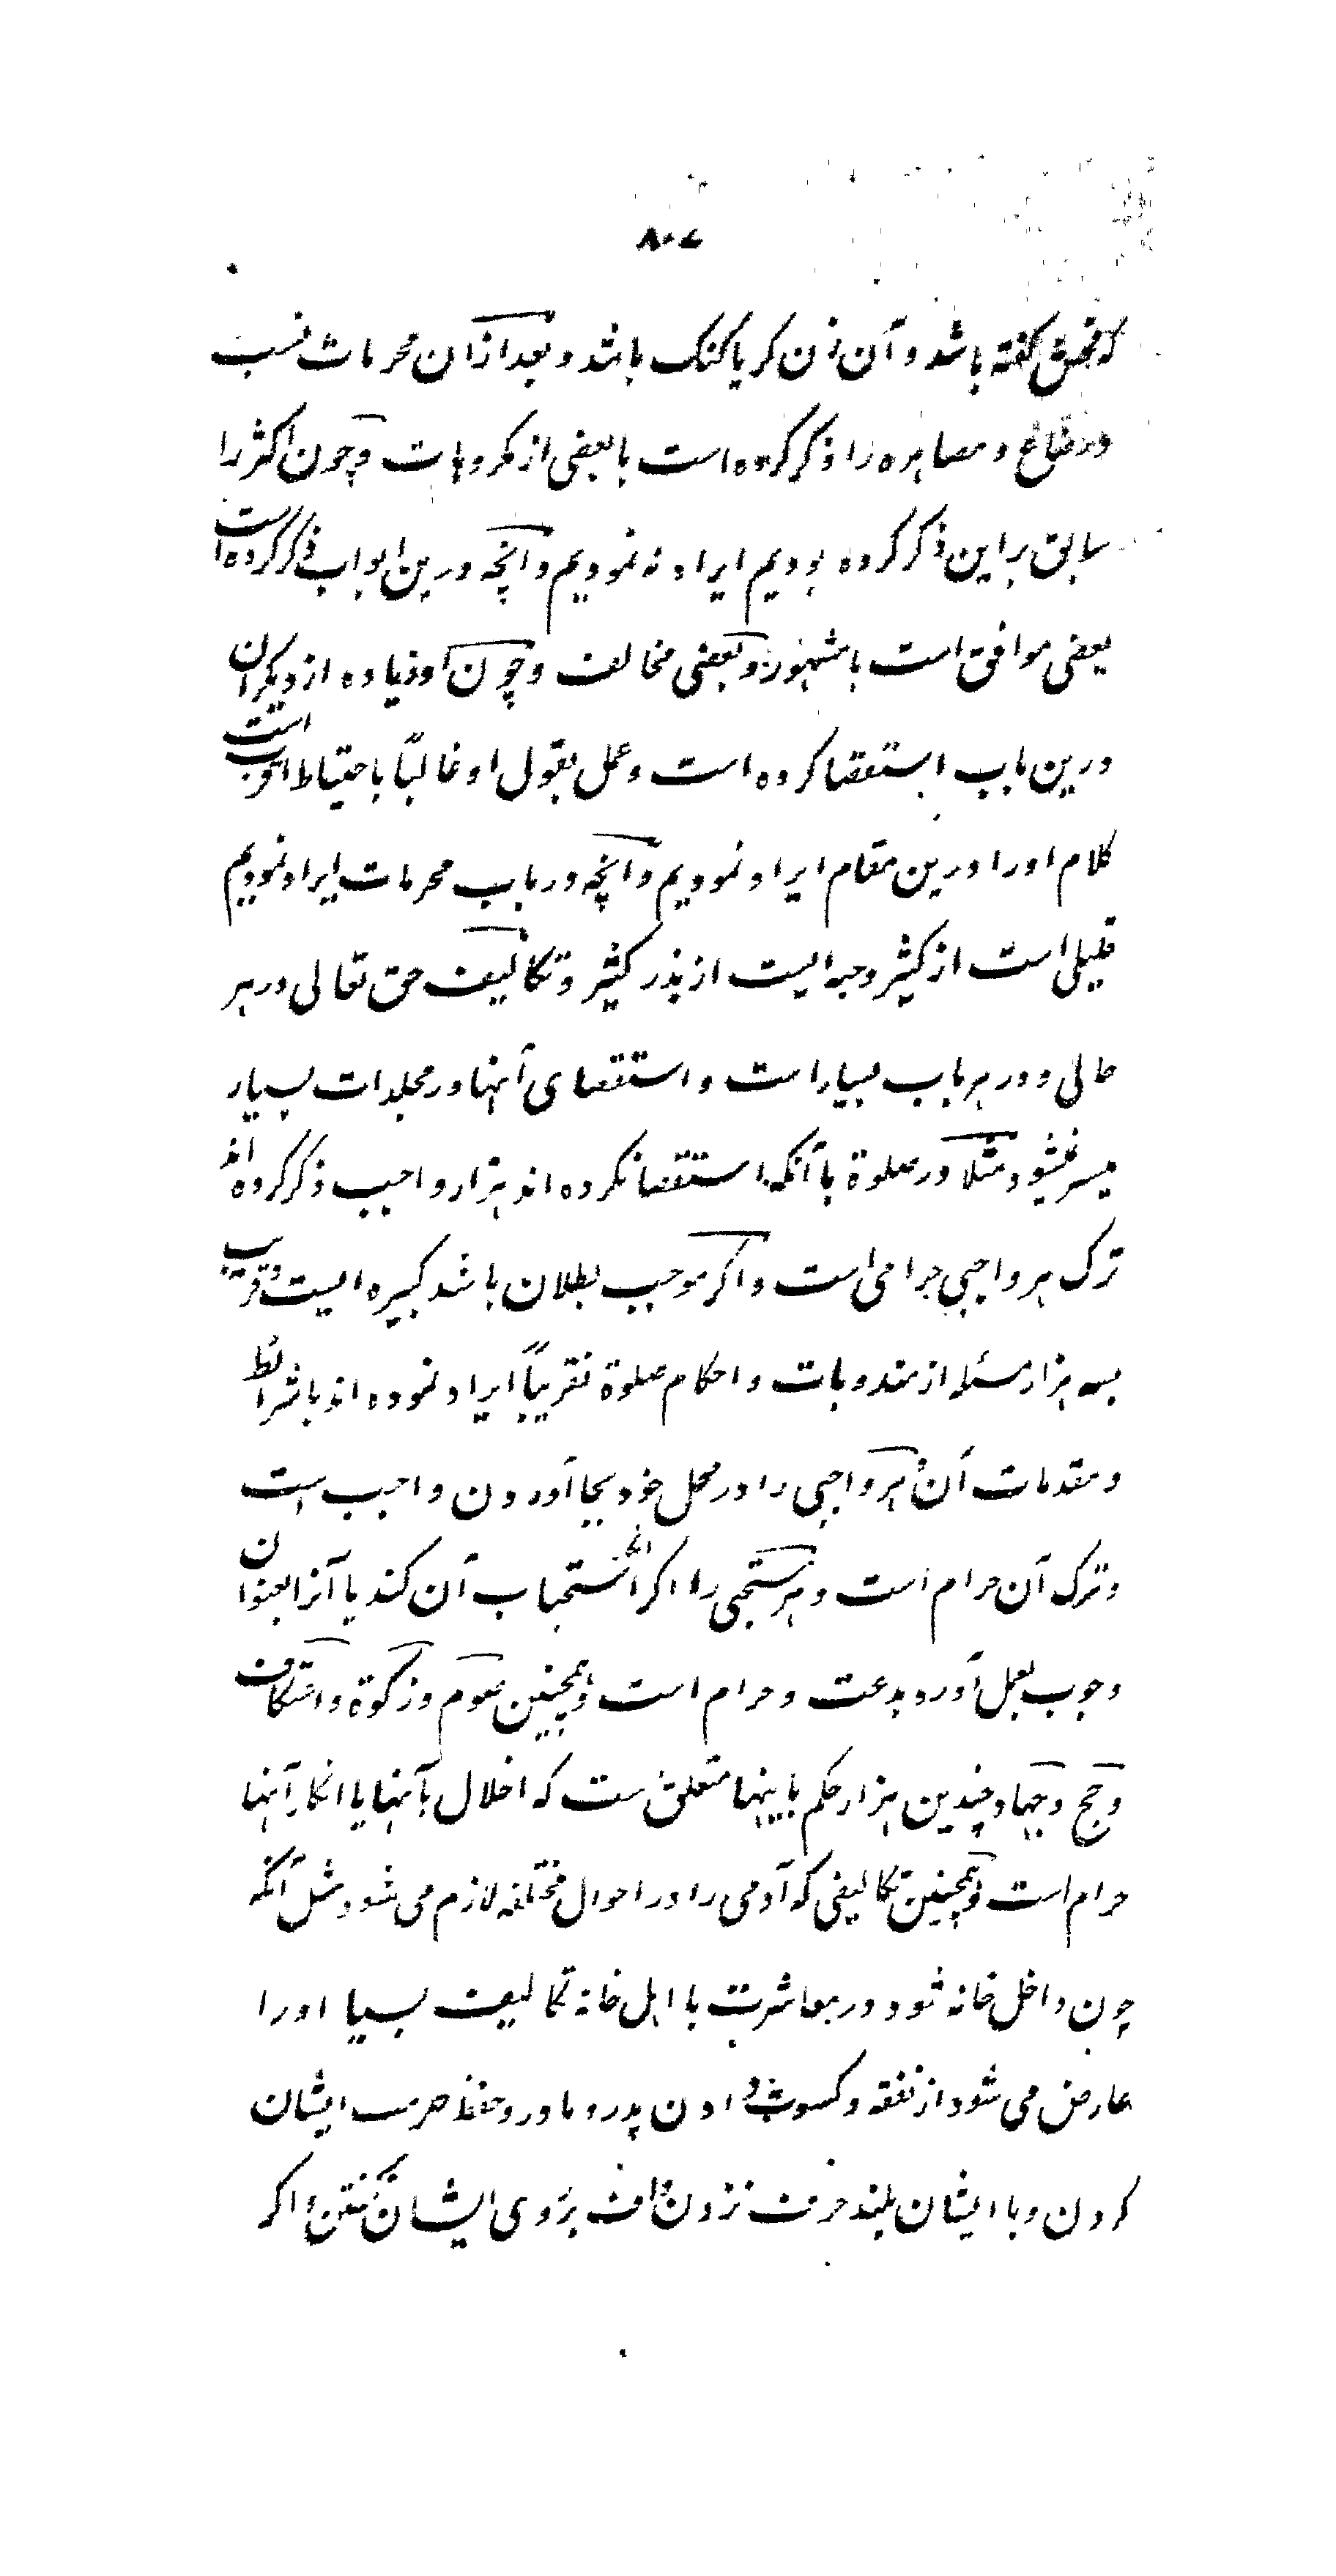 ۸۰۷
که فحش گفته باشد و آن زن کر یا کنک باشد و بعد ازان محرمات نسب
و رضاع و مصاهره را ذکر کرده است با بعضی از مکروهات و چون اکثر را
سابق براین ذکر کرده بودیم ایراد نه نمودیم و آنچه درین ابواب ذکر کرده است
بعضی موافق است با مشهور و بعضی مخالف و چون او زیاده از دیکران
درین باب استقصا کرده است و عمل بقول او غالباً باحتیاط اقرب است
کلام او را درین مقام ایراد نمودیم و آنچه در باب محرمات ایراد نمودیم
قلیلی است از کثیر و حبه ایست از بذر کثیر و تکالیف حق تعالی در هر
حالی و در هر باب بسیار است و استقصای آنها در مجلدات بسیار
میسر نمیشود مثلا در صلوة با آنکه استقصا نکرده اند هزار واجب ذکر کرده اند
ترک هر واجبی حرامی است و اکر موجب بطلان باشد کبیره ایست و قریب
بسه هزار مسئله از مندوبات و احکام صلوة تقریباً ایراد نموده اند با شرائط
و مقدمات آن و هر واجبی را در محل خود بجا آوردن واجب است
و ترک آن حرام است و هر مستحبی را اکر انکار استحباب آن کند یا آنرا بعنوان
وجوب بعمل آورد بدعت و حرام است و همچنین صوم و زکوة و اعتکاف
و حج و جهاد و چندین هزار حکم باینها متعلق ست که اخلال بآنها یا انکار آنها
حرام است و همچنین تکالیفی که آدمی را در احوال مختلفه لازم می شود مثل آنکه
چون داخل خانه شود در معاشرت با اهل خانه تکالیف بسیا او را
عارض می شود از نفقه و کسوت دادن پدر و مادر و حفظ حرمت ایشان
کردن و با ایشان بلند حرف نزدن و اف بروی ایشان نکفتن و اکر